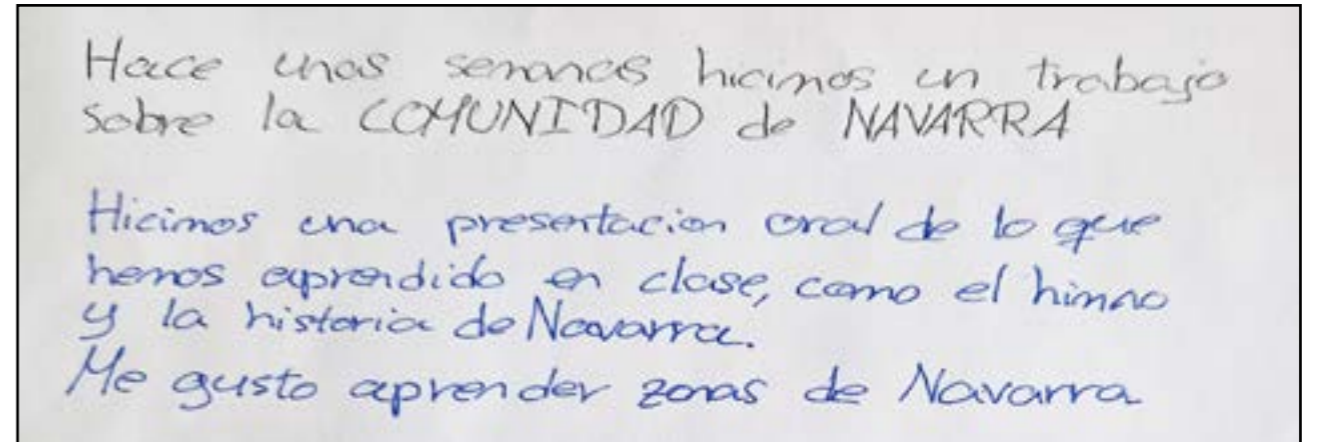 Hace unas semanas hicimos un trabajo
sobre la COMUNIDAD de NAVARRA
Hicimos una presentacion oral de lo que
hemos aprendido en clase, como el himno
y la historia de Navarra.
Me gusto aprender zonas de Navarra